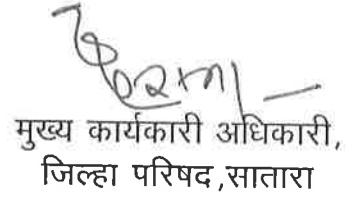 मुख्य कार्यकारी अधिकारी,
जिल्हा परिषद ,सातारा